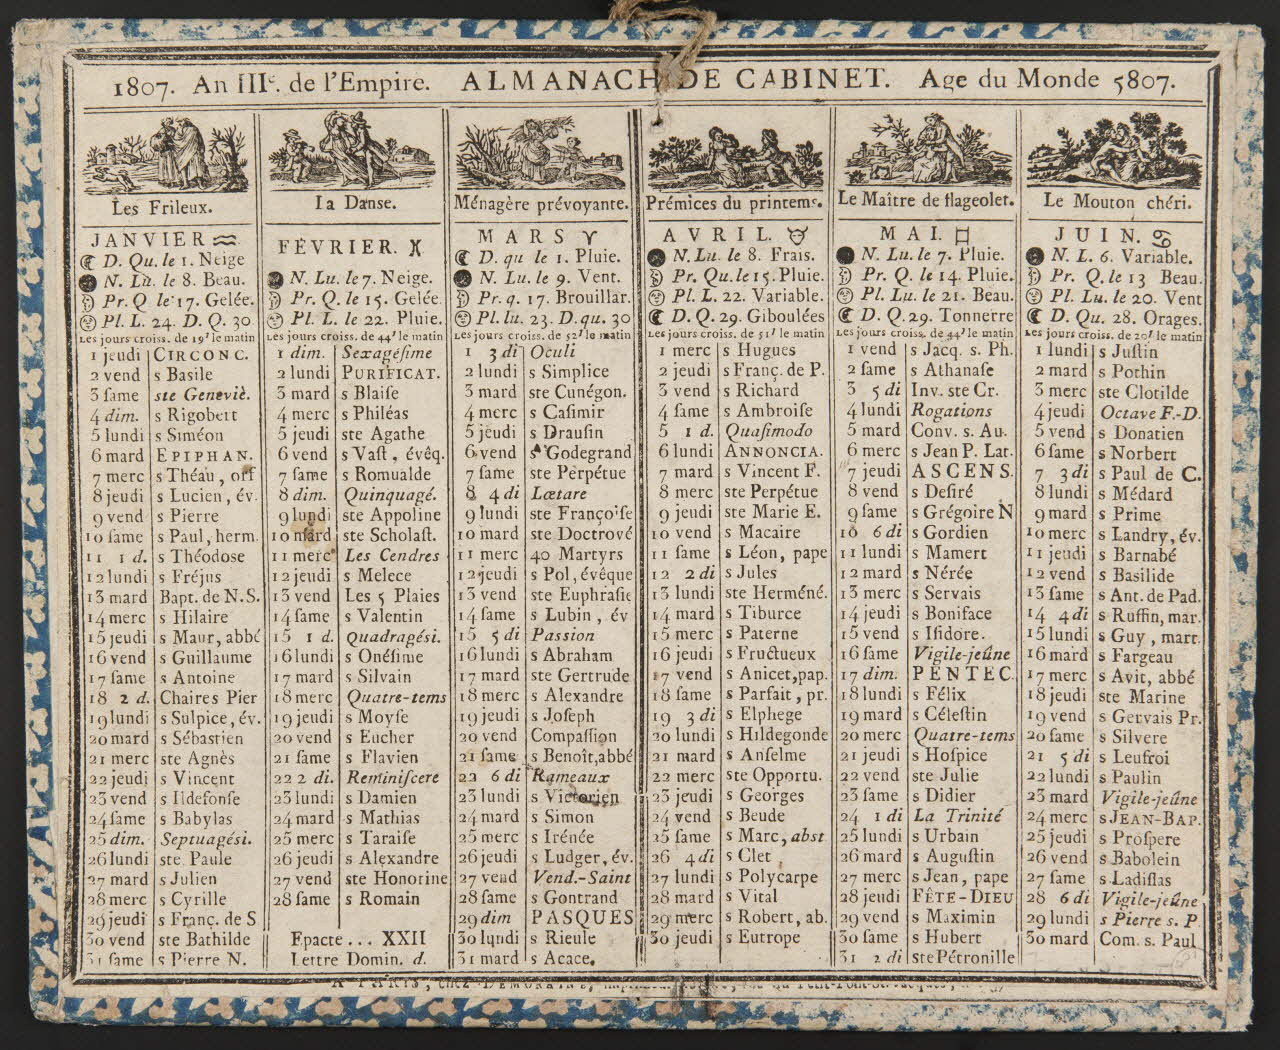 1807. An IIIe. de l'Empire. ALMANACH DE CABINET. Age du Monde 5807.
Les Frileux.
JANVIER ♒
D. Qu. le 1. Neige
N. Lu. le 8. Beau.
Pr. Q. le 17. Gelée.
Pl. L. 24. D. Q. 30
Les jours croiss. de 19' le matin
1 jeudi CIRCONC.
2 vend s Basile
3 ſame ste Genevie.
4 dim. s Rigobert
5 lundi s Siméon
6 mard EPIPHAN.
7 merc s Théau, orf
8 jeudi s Lucien, év.
9 vend s Pierre
10 ſame s Paul, herm.
11 1 d. s Théodose
12 lundi s Fréjus
13 mard Bapt. de N.S.
14 merc s Hilaire
15 jeudi s Maur, abbé
16 vend s Guillaume
17 ſame s Antoine
18 2 d. Chaires Pier
19 lundi s Sulpice, év.
20 mard s Sébastien
21 merc ste Agnès
22 jeudi s Vincent
23 vend s Ildefonſe
24 ſame s Babylas
25 dim. Septuagési.
26 lundi ste. Paule
27 mard s Julien
28 merc s Cyrille
29 jeudi s Franç. de S
30 vend ste Bathilde
31 ſame s Pierre N.
La Danse.
FÉVRIER. ♓
N. Lu. le 7. Neige.
Pr. Q. le 15. Gelée.
Pl. L. le 22. Pluie.
Les jours croiss. de 44' le matin
1 dim. Sexagéſime
2 lundi PURIFICAT.
3 mard s Blaiſe
4 merc s Philéas
5 jeudi ste Agathe
6 vend s Vaſt, évêq.
7 ſame s Romualde
8 dim. Quinquagé.
9 lundi ste Appoline
10 mard ste Scholaſt.
11 merc Les Cendres
12 jeudi s Melece
13 vend Les 5 Plaies
14 ſame s Valentin
15 1 d. Quadragési.
16 lundi s Onéſime
17 mard s Silvain
18 merc Quatre-tems
19 jeudi s Moyſe
20 vend s Eucher
21 ſame s Flavien
22 2 di. Reminiſcere
23 lundi s Damien
24 mard s Mathias
25 merc s Taraiſe
26 jeudi s Alexandre
27 vend ste Honorine
28 ſame s Romain
Epacte ... XXII
Lettre Domin. d.
Ménagère prévoyante.
MARS ♈
D. qu le 1. Pluie.
N. Lu. le 9. Vent.
Pr. q. 17. Brouillar.
Pl. lu. 23. D. qu. 30
Les jours croiss. de 52' le matin
1 3 di Oculi
2 lundi s Simplice
3 mard ste Cunégon.
4 merc s Caſimir
5 jeudi s Drauſin
6 vend s Godegrand
7 ſame ste Perpétue
8 4 di Lætare
9 lundi ste Françoiſe
10 mard ste Doctrové
11 merc 40 Martyrs
12 jeudi s Pol, évêque
13 vend ste Euphraſie
14 ſame s Lubin, év
15 5 di Passion
16 lundi s Abraham
17 mard ste Gertrude
18 merc s Alexandre
19 jeudi s Joſeph
20 vend Compaſſion
21 ſame s Benoît, abbé
22 6 di Rameaux
23 lundi s Victorien
24 mard s Simon
25 merc s Irénée
26 jeudi s Ludger, év.
27 vend Vend.-Saint
28 ſame s Gontrand
29 dim PASQUES
30 lundi s Rieule
31 mard s Acace.
Prémices du printems.
AVRIL. ♉
N. Lu le 8. Frais.
Pr. Qu. le 15. Pluie.
Pl. L. 22. Variable.
D. Q. 29. Giboulées
Les jours croiss. de 51' le matin
1 merc s Hugues
2 jeudi s Franç. de P.
3 vend s Richard
4 ſame s Ambroiſe
5 1 d. Quaſimodo
6 lundi ANNONCIA.
7 mard s Vincent F.
8 merc ste Perpétue
9 jeudi ste Marie E.
10 vend s Macaire
11 ſame s Léon, pape
12 2 di s Jules
13 lundi ste Herméné.
14 mard s Tiburce
15 merc s Paterne
16 jeudi s Fructueux
17 vend s Anicet, pap.
18 ſame s Parfait, pr.
19 3 di s Elphege
20 lundi s Hildegonde
21 mard s Anſelme
22 merc ste Opportu.
23 jeudi s Georges
24 vend s Beude
25 ſame s Marc, abst
26 4 di s Clet
27 lundi s Polycarpe
28 mard s Vital
29 merc s Robert, ab.
30 jeudi s Eutrope
Le Maître de flageolet.
MAI. ♊
N. Lu. le 7. Pluie.
Pr. Q. le 14. Pluie.
Pl. Lu. le 21. Beau.
D. Q. 29. Tonnerre
Les jours croiss. de 44' le matin
1 vend s Jacq. s. Ph.
2 ſame s Athanaſe
3 5 di Inv. ste Cr.
4 lundi Rogations
5 mard Conv. s. Au.
6 merc s Jean P. Lat.
7 jeudi ASCENS.
8 vend s Deſiré
9 ſame s Grégoire N
10 6 di s Gordien
11 lundi s Mamert
12 mard s Nérée
13 merc s Servais
14 jeudi s Boniface
15 vend s Iſidore.
16 ſame Vigile-jeûne
17 dim. PENTEC.
18 lundi s Félix
19 mard s Céleſtin
20 merc Quatre-tems
21 jeudi s Hoſpice
22 vend ste Julie
23 ſame s Didier
24 1 di La Trinité
25 lundi s Urbain
26 mard s Auguſtin
27 merc s Jean, pape
28 jeudi FÊTE-DIEU
29 vend s Maximin
30 ſame s Hubert
31 2 di ste Pétronille
Le Mouton chéri.
JUIN. ♋
N. L. 6. Variable.
Pr. Q. le 13 Beau.
Pl. Lu. le 20. Vent
D. Qu. 28. Orages.
Les jours croiss. de 20' le matin
1 lundi s Juſtin
2 mard s Pothin
3 merc ste Clotilde
4 jeudi Octave F.-D.
5 vend s Donatien
6 ſame s Norbert
7 3 di s Paul de C.
8 lundi s Médard
9 mard s Prime
10 merc s Landry, év.
11 jeudi s Barnabé
12 vend s Basilide
13 ſame s Ant. de Pad.
14 4 di s Ruffin, mar.
15 lundi s Guy, mart.
16 mard s Fargeau
17 merc s Avit, abbé
18 jeudi ste Marine
19 vend s Gervais Pr.
20 ſame s Silvere
21 5 di s Leufroi
22 lundi s Paulin
23 mard Vigile-jeûne
24 merc s JEAN-BAP.
25 jeudi s Proſpere
26 vend s Babolein
27 ſame s Ladiſlas
28 6 di Vigile-jeûne
29 lundi s Pierre s. P
30 mard Com. s. Paul
A PARIS, chez DEMORAINE,